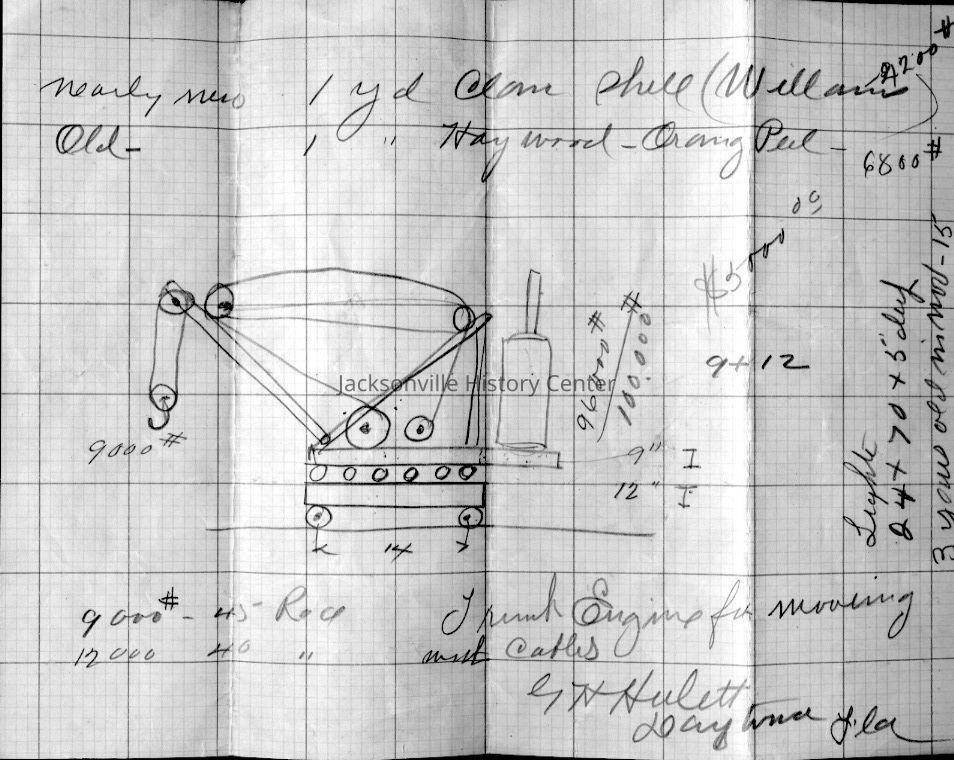 nearly new 1 yd Clam Shell (Williams 4200#
Old - 1 " Haywood - Orang Peel - 6800#
$5000 00
96000#
100.000#
9 + 12
Jacksonville History Center
9000#
9" I
12" I
14
Lighte
24 + 70 + 5' deep
3 years old in nod - 15
9000# - 45 Rad
12000 40 "
Engine for mooving
Cables
G H Hulett
Daytona Fla